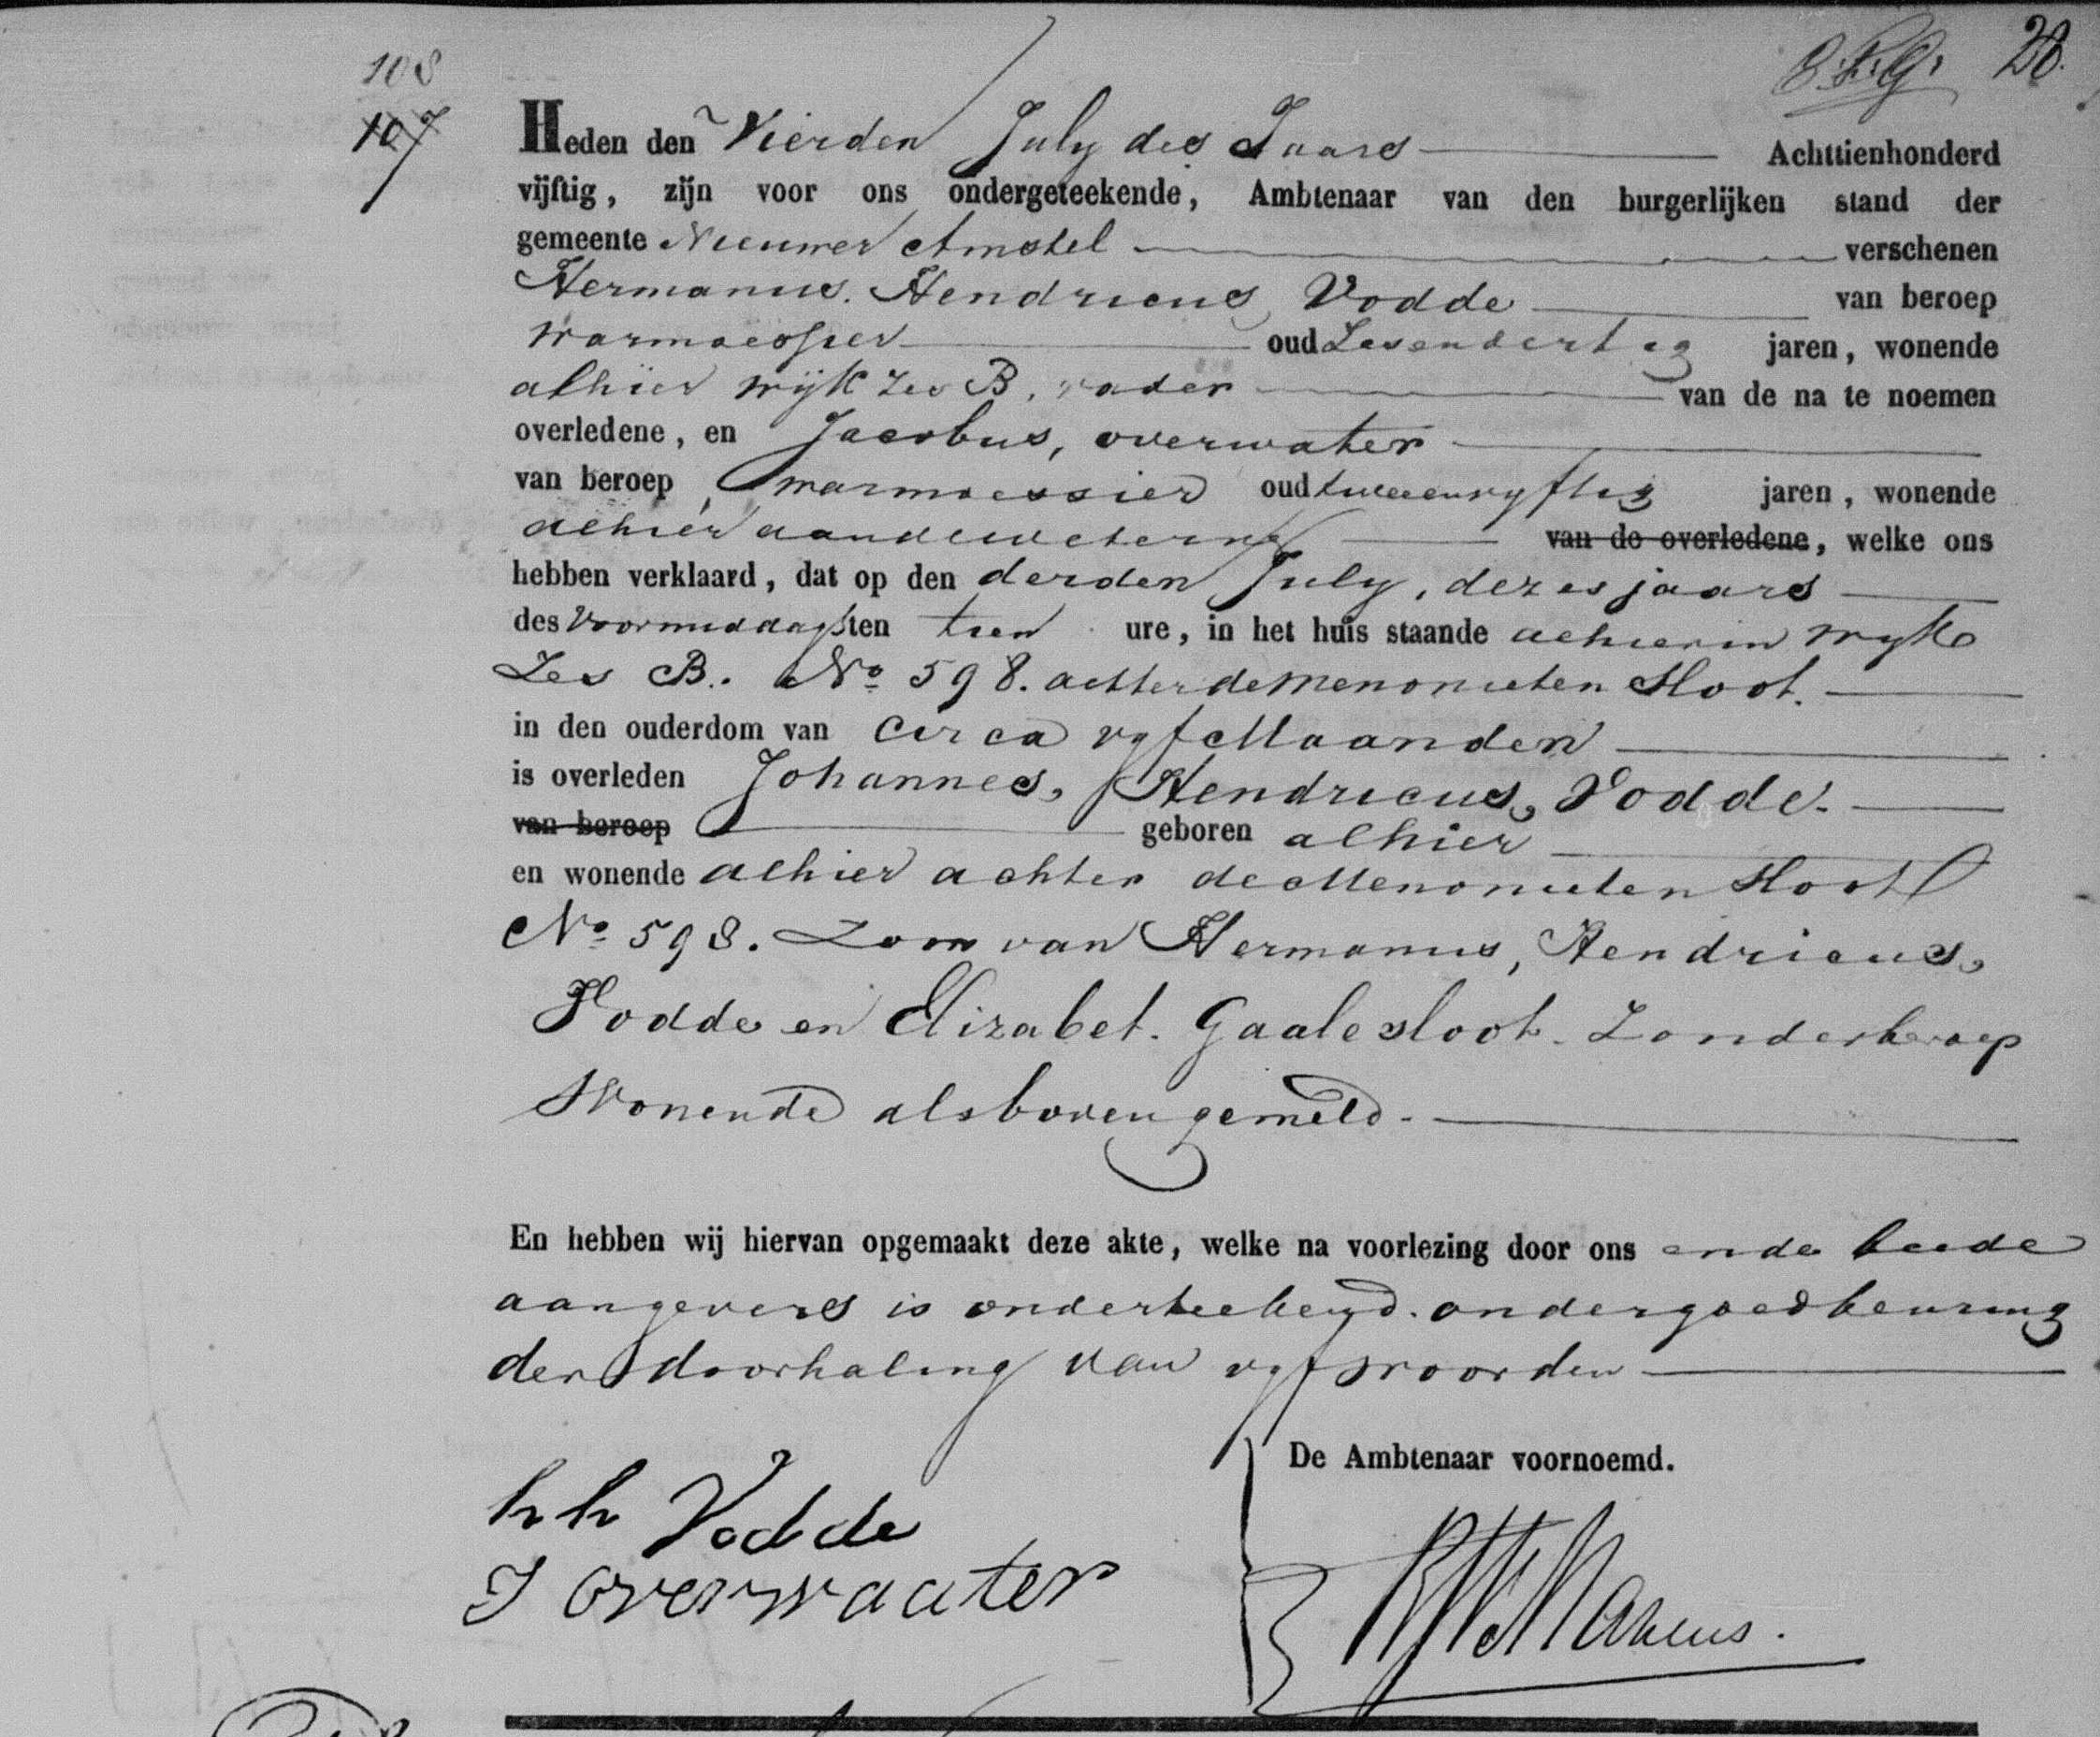 108
107
20.
Heden den Vierden July des Jaars Achttienhonderd
vijftig, zijn voor ons ondergeteekende, Ambtenaar van den burgerlijken stand der
gemeente Nieuwer Amstel verschenen
Hermanus. Hendricus Vodde van beroep
warmoesier oud Zesendertig jaren, wonende
alhier wijk Zes B. vader van de na te noemen
overledene, en Jacobus, overwater
van beroep warmoessier oud tweeenvyftig jaren, wonende
alhier aandewetering van de overledene, welke ons
hebben verklaard, dat op den derden July, dezes jaars
des Voormiddags ten tien ure, in het huis staande alhier in wyk
Zes B. No 598. achter de Menonieten Sloot.
in den ouderdom van circa vyf Maanden
is overleden Johannes, Hendricus, Vodde.
van beroep geboren alhier
en wonende alhier achter de Menonieten Sloot
No 598. Zoon van Hermanus, Hendricus,
Vodde en Elizabet. Gaalesloot. Zonder beroep
Wonende als boven gemeld.
En hebben wij hiervan opgemaakt deze akte, welke na voorlezing door ons ende beide
aangevers is onderteekend. onder goedkeuring
der doorhaling van vyf woorden
De Ambtenaar voornoemd.
h h Vodde
J overwaater